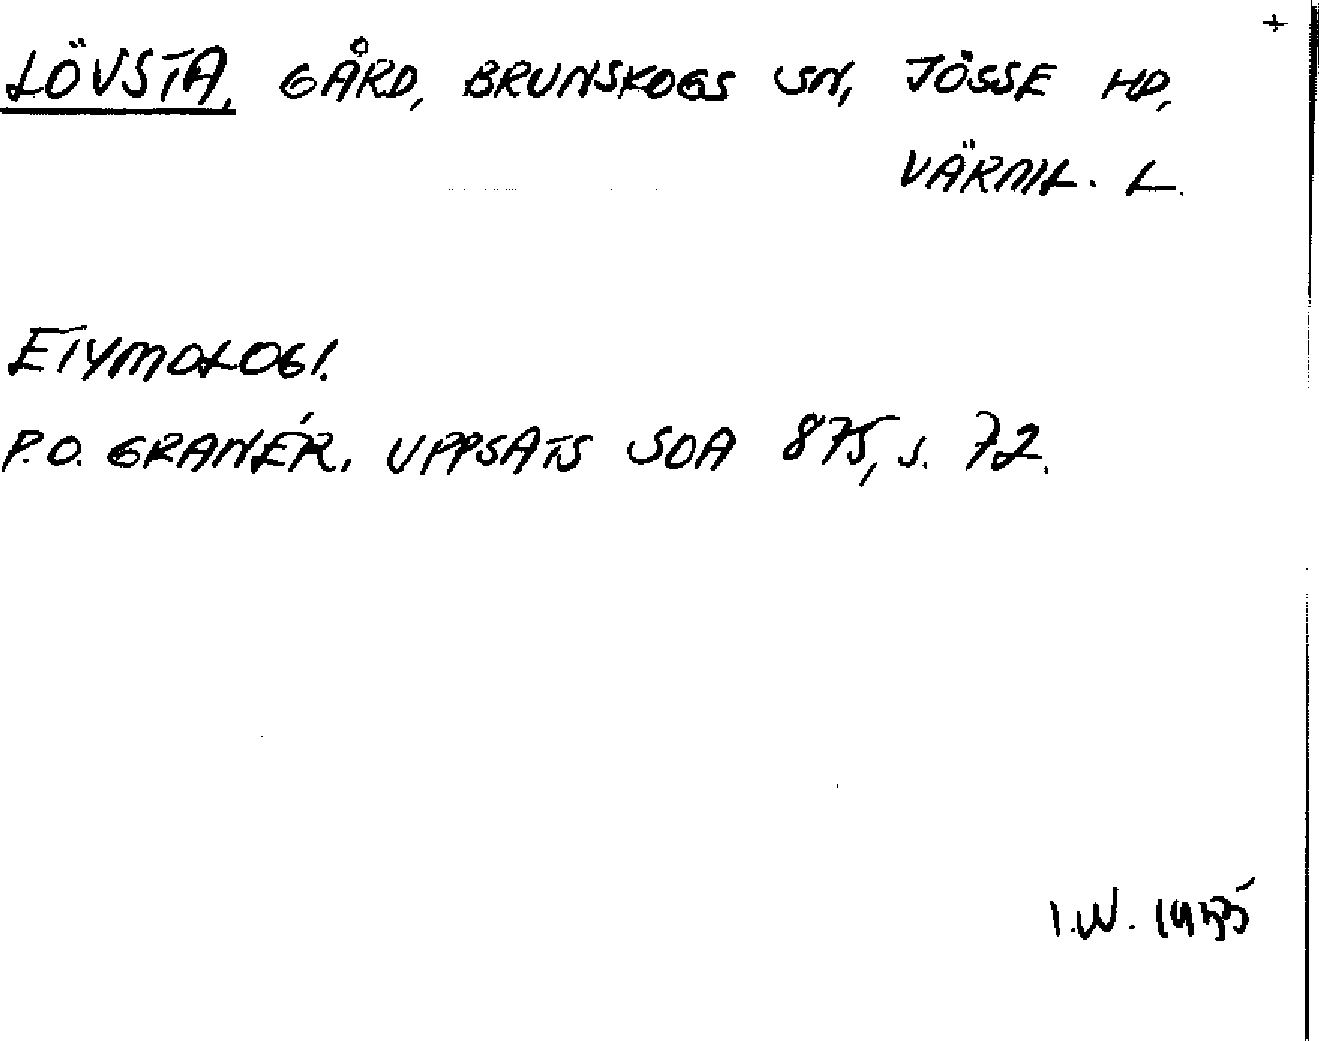 +
LÖVSTA, GÅRD, BRUNSKOGS SN, JÖSSE HD,
VÄRML. L.
ETYMOLOGI.
P.O. GRANÉR. UPPSATS SOA 875, S. 72.
I.W. 1975